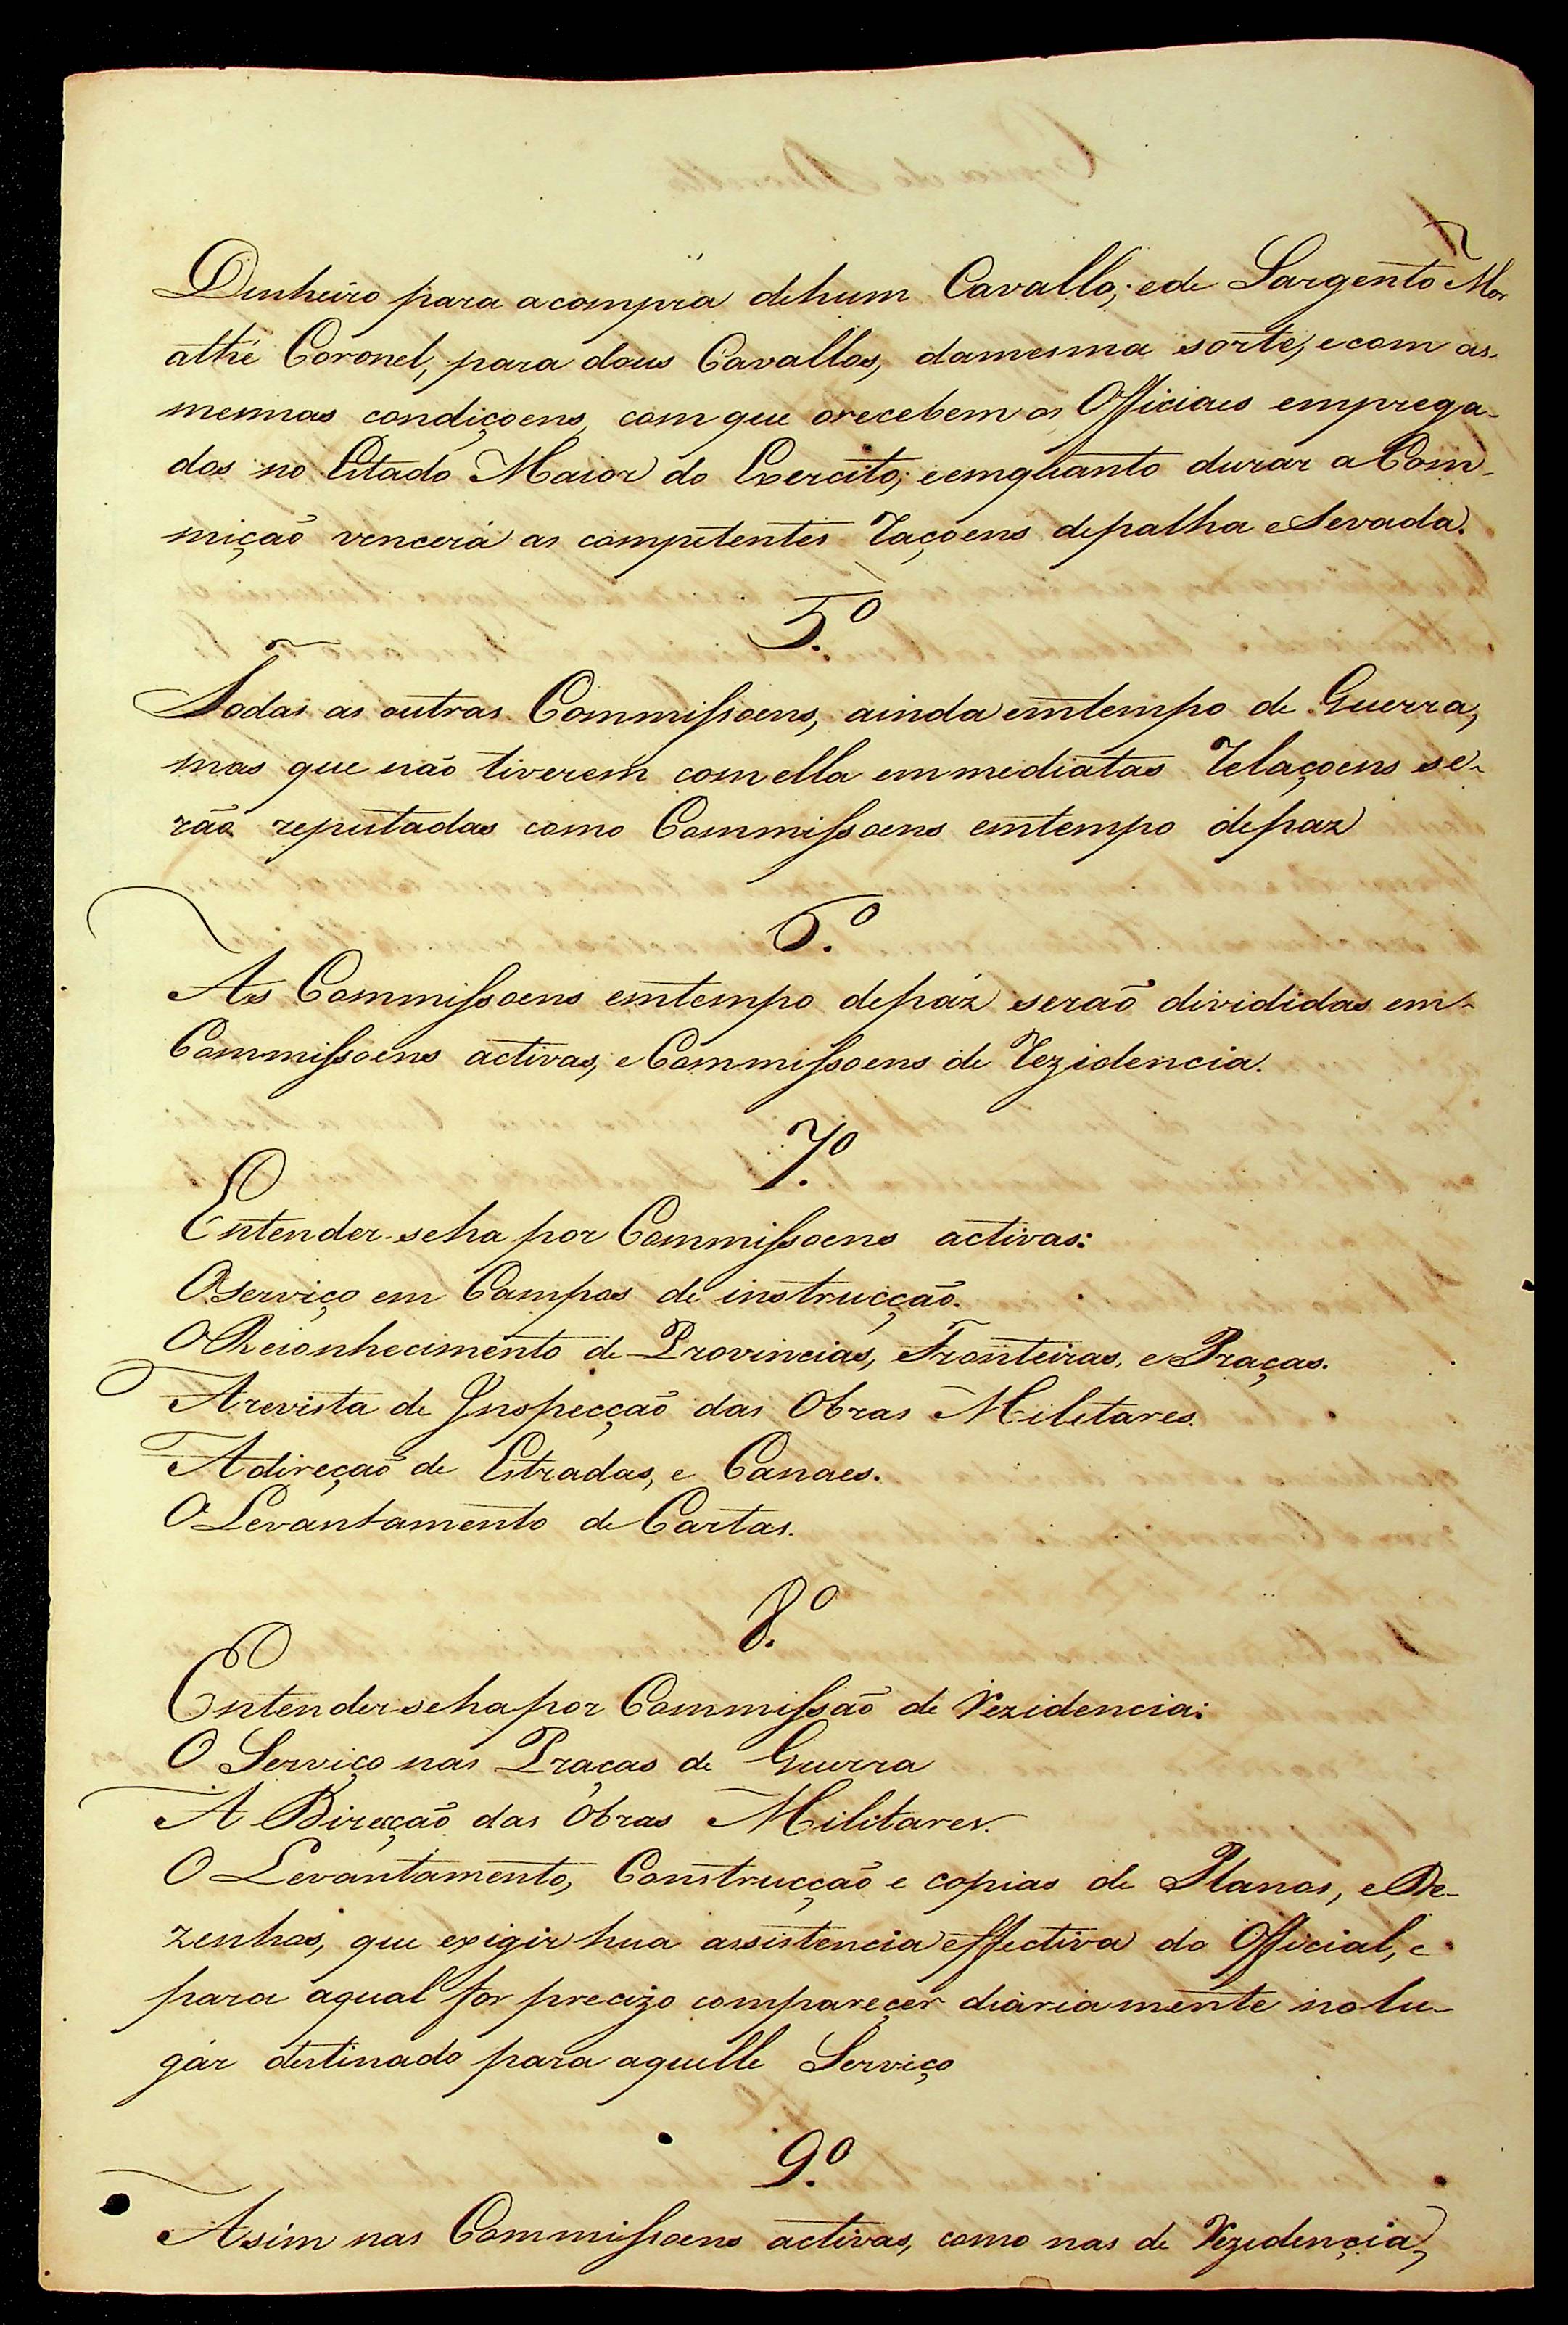 Dinheiro para acompra dehum Cavallo; ede Sargento Mor
athé Coronel, para dous Cavallos, damesma sorte, ecom as
mesmas condiçoens, com que orecebem os Officiaes emprega-
dos no Estado Maior do Exercito; eemquanto durar a Com-
mição vencerá as competentes raçoens depalha eSevada.
5.º
Todas as outras Commissoens, ainda emtempo de Guerra,
mas que não tiverem comella emmediatas relaçoens se-
rão reputadas como Commissoens emtempo depaz
6.º
As Commissoens emtempo depáz serão divididas em
Commissoens activas, eCommissoens de rezidencia.
7.º
Entender-seha por Commissoens activas:
Oserviço em Campos de instrucção.
OReconhecimento de Provincias, eFronteiras, ePraças.
Arevista de Inspecção das Obras Militares.
Adireção de Estradas, e Canaes.
OLevantamento de Cartas.
8.º
Entender-sehapor Commissão de rezidencia:
O Serviço nas Praças de Guerra
A Direcção das Obras Militares.
O Levantamento, Construcção e copias de Planos, eDe-
zenhos, que exigir hua assistencia effectiva do Official, e
para aqual for precizo compareçer diariamente nolu-
gár destinado para aquelle Serviço
9.º
Asim nas Commissoens activas, como nas de rezidençia,